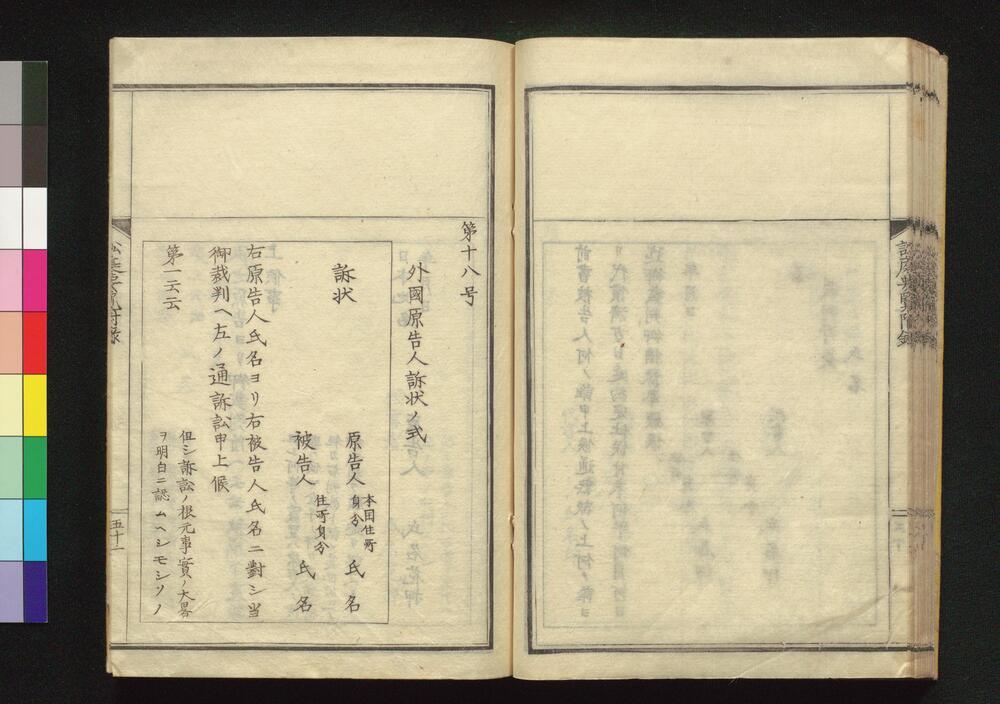 第十八号
外國原告人訴状ノ式
訴状
原告人 本国住所 身分 氏名
被告人 住所身分 氏名
右原告人氏名ヨリ右被告人氏名ニ對シ当
御裁判ヘ左ノ通訴訟申上候
第一云云
但シ訴訟ノ根元事實ノ大畧
ヲ明白ニ認ムヘシモシソノ
五十一